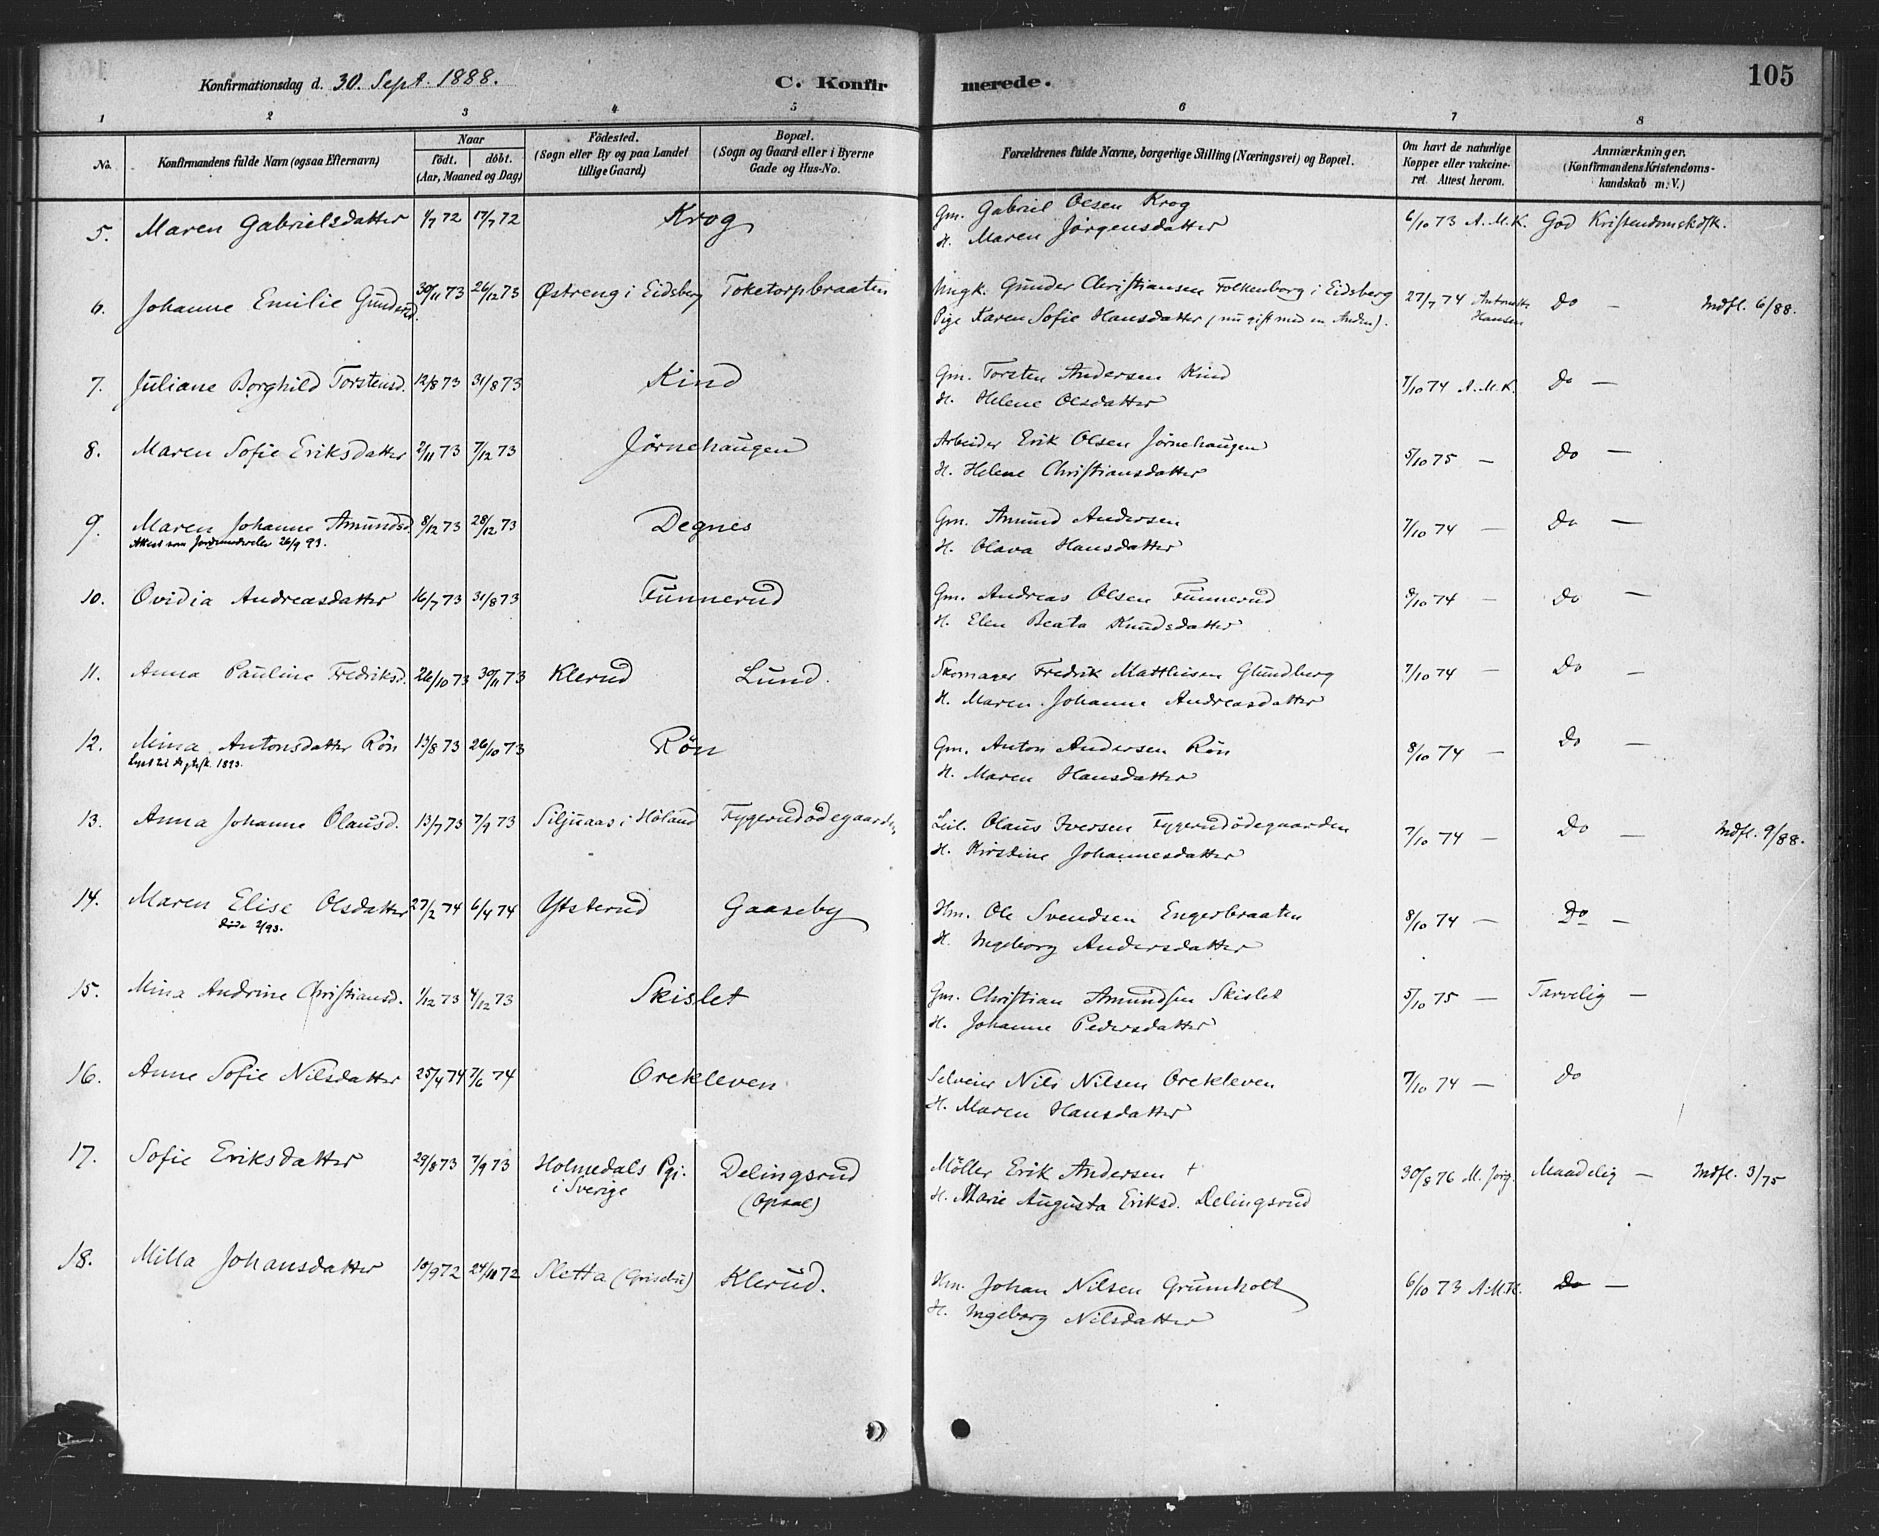 Konfirmationsdag d. 30. Sept. 1888.
C. Konfirmerede.
105
1 2 3 4 5 6 7 8
No.
Konfirmandens fulde Navn (ogsaa Efternavn)
Naar
födt. döbt.
(Aar, Maaned og Dag)
Födested.
(Sogn eller By og paa Landet tillige Gaard)
Bopæl.
(Sogn og Gaard eller i Byerne Gade og Hus-No.
Forældrenes fulde Navne, borgerlige Stilling (Næringsvei) og Bopæl.
Om havt de naturlige Kopper eller vaccineret. Attest herom.
Anmærkninger.
(Konfirmandens Kristendomskundskab m. V.)
5. Maren Gabrielsdatter 1/7 72 17/7 72 Krog Gm. Gabriel Olsen Krog 6/10 73 A.M.K. God Kristendomskdsk.
H. Maren Jörgensdatter
6. Johanne Emilie Gundersd. 30/11 73 26/12 73 Østreng i Eidsberg Toketorpbraaten Ungk. Gunder Christiansen Folkenborg i Eidsberg 27/7 74 Do — Indfl. 6/88.
Pige Karen Sofie Hansdatter (nu gift med en Anden). Hansen
7. Juliane Borghild Torstensd. 12/8 73 31/8 73 Kind Gm. Torsten Andersen Kind 7/10 74 A.M.K. Do —
H. Helene Olsdatter
8. Maren Sofie Eriksdatter 2/11 73 7/12 73 Jörnehaugen Arbeider Erik Olsen Jörnehaugen 5/10 75 — Do —
H. Helene Christiansdatter
9. Maren Johanne Amundsd. 8/12 73 28/12 73 Degnes Gm. Amund Andersen 7/10 74 — Do —
Attest som 26/9 93. H. Olava Hansdatter
10. Ovidia Andreasdatter 16/7 73 31/8 73 Funnerud Gm. Andreas Olsen Funnerud 8/10 74 — Do —
H. Elen Beata Knudsdatter
11. Anna Pauline Fredriksd. 26/10 73 30/11 73 Klerud Lund. Skomager Fredrik Matthisen Glundberg 7/10 74 — Do —
H. Maren Johanne Andreasdatter
12. Mina Antonsdatter Rön 13/8 73 26/10 73 Rön Gm. Anton Andersen Rön 8/10 74 — Do —
1893. H. Maren Hansdatter
13. Anna Johanne Olausd. 13/7 73 7/9 73 Siljuaas i Höland Fygerudödegaarden Leil. Olaus Iversen Fygerudödegaarden 7/10 74 — Do — Indfl. 9/88.
H. Kirstine Johannesdatter
14. Maren Elise Olsdatter 27/2 74 6/4 74 Ytsterud Gaaseby Hm. Ole Svendsen Engerbraaten 8/10 74 — Do —
Döde 2/93. H. Ingeborg Andersdatter
15. Mina Andrine Christiansd. 1/12 73 4/12 73 Skislet Gm. Christian Amundsen Skislet 5/10 75 — Tarvelig —
H. Johanne Pedersdatter
16. Anne Sofie Nilsdatter 25/4 74 7/6 74 Orekleven Selveier Nils Nilsen Orekleven 7/10 74 — Do
H. Maren Hansdatter
17. Sofie Eriksdatter 29/8 73 7/9 73 Holmedals Pgj. i Sverige Delingsrud (Opsal) Möller Erik Andersen + 30/8 76 M. Jörg. Maadelig — Indfl. 3/75
H. Marie Augusta Eriksd. Delingsrud
18. Milla Johansdatter 10/9 72 24/11 72 Sletta (Grisebu) Klerud. Hm. Johan Nilsen Grumholt 6/10 73 A.M.K. Do —
H. Ingeborg Nilsdatter